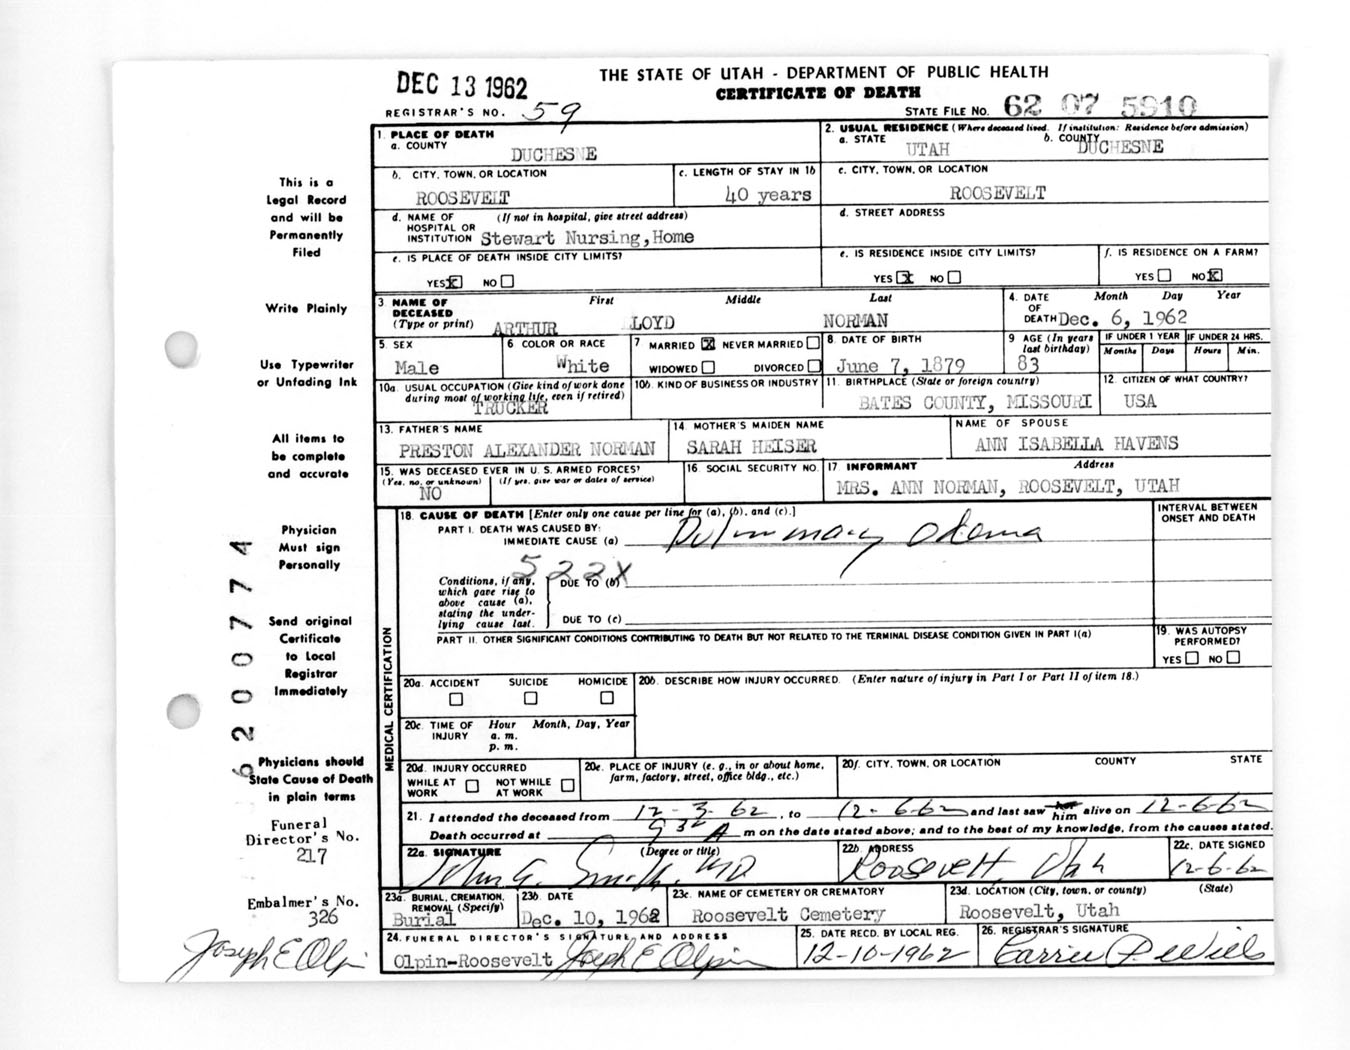 DEC 13 1962
THE STATE OF UTAH - DEPARTMENT OF PUBLIC HEALTH
CERTIFICATE OF DEATH
REGISTRAR'S NO. 59
STATE FILE NO. 62 07 5910
1. PLACE OF DEATH
a. COUNTY
DUCHESNE
2. USUAL RESIDENCE (Where deceased lived. If institution: Residence before admission)
a. STATE b. COUNTY
UTAH DUCHESNE
b. CITY, TOWN, OR LOCATION
ROOSEVELT
c. LENGTH OF STAY IN 1b
40 years
c. CITY, TOWN, OR LOCATION
ROOSEVELT
d. NAME OF (If not in hospital, give street address)
HOSPITAL OR
INSTITUTION Stewart Nursing,Home
d. STREET ADDRESS
e. IS PLACE OF DEATH INSIDE CITY LIMITS?
YES X NO
e. IS RESIDENCE INSIDE CITY LIMITS?
YES X NO
f. IS RESIDENCE ON A FARM?
YES NO X
3 NAME OF First Middle Last
DECEASED
(Type or print) ARTHUR LOYD NORMAN
4. DATE Month Day Year
OF
DEATH Dec. 6, 1962
5. SEX
Male
6 COLOR OR RACE
White
7 MARRIED X NEVER MARRIED
WIDOWED DIVORCED
8. DATE OF BIRTH
June 7, 1879
9 AGE (In years
last birthday)
83
IF UNDER 1 YEAR IF UNDER 24 HRS.
Months Days Hours Min.
10a. USUAL OCCUPATION (Give kind of work done
during most of working life, even if retired)
TRUCKER
10b. KIND OF BUSINESS OR INDUSTRY
11. BIRTHPLACE (State or foreign country)
BATES COUNTY, MISSOURI
12. CITIZEN OF WHAT COUNTRY?
USA
13. FATHER'S NAME
PRESTON ALEXANDER NORMAN
14. MOTHER'S MAIDEN NAME
SARAH HEISER
NAME OF SPOUSE
ANN ISABELLA HAVENS
15. WAS DECEASED EVER IN U.S. ARMED FORCES?
(Yes, no, or unknown) (If yes, give war or dates of service)
NO
16. SOCIAL SECURITY NO.
17 INFORMANT Address
MRS. ANN NORMAN, ROOSEVELT, UTAH
MEDICAL CERTIFICATION
18. CAUSE OF DEATH [Enter only one cause per line for (a), (b), and (c).]
PART I. DEATH WAS CAUSED BY:
IMMEDIATE CAUSE (a) Pulmonary Odema
INTERVAL BETWEEN
ONSET AND DEATH
522X
Conditions, if any,
which gave rise to
above cause (a),
stating the under-
lying cause last.
DUE TO (b)
DUE TO (c)
PART II. OTHER SIGNIFICANT CONDITIONS CONTRIBUTING TO DEATH BUT NOT RELATED TO THE TERMINAL DISEASE CONDITION GIVEN IN PART I(a)
19. WAS AUTOPSY
PERFORMED?
YES NO
20a. ACCIDENT SUICIDE HOMICIDE
20b. DESCRIBE HOW INJURY OCCURRED. (Enter nature of injury in Part I or Part II of item 18.)
20c. TIME OF Hour Month, Day, Year
INJURY a. m.
p. m.
20d. INJURY OCCURRED
WHILE AT NOT WHILE
WORK AT WORK
20e. PLACE OF INJURY (e. g., in or about home,
farm, factory, street, office bldg., etc.)
20f. CITY, TOWN, OR LOCATION COUNTY STATE
21. I attended the deceased from 12-3-62, to 12-6-62 and last saw her him alive on 12-6-62
Death occurred at 9 32 A m on the date stated above; and to the best of my knowledge, from the causes stated.
22a. SIGNATURE (Degree or title)
John G. Smith, MD
22b. ADDRESS
Roosevelt, Utah
22c. DATE SIGNED
12-6-62
23a. BURIAL, CREMATION,
REMOVAL (Specify)
Burial
23b. DATE
Dec. 10, 1962
23c. NAME OF CEMETERY OR CREMATORY
Roosevelt Cemetery
23d. LOCATION (City, town, or county) (State)
Roosevelt, Utah
24. FUNERAL DIRECTOR'S SIGNATURE AND ADDRESS
Olpin-Roosevelt Joseph E Olpin
25. DATE RECD. BY LOCAL REG.
12-10-1962
26. REGISTRAR'S SIGNATURE
Carrie P. Wiles
This is a
Legal Record
and will be
Permanently
Filed
Write Plainly
Use Typewriter
or Unfading Ink
All items to
be complete
and accurate
Physician
Must sign
Personally
Send original
Certificate
to Local
Registrar
Immediately
Physicians should
State Cause of Death
in plain terms
Funeral
Director's No.
217
Embalmer's No.
326
Joseph E Olpin
6200774